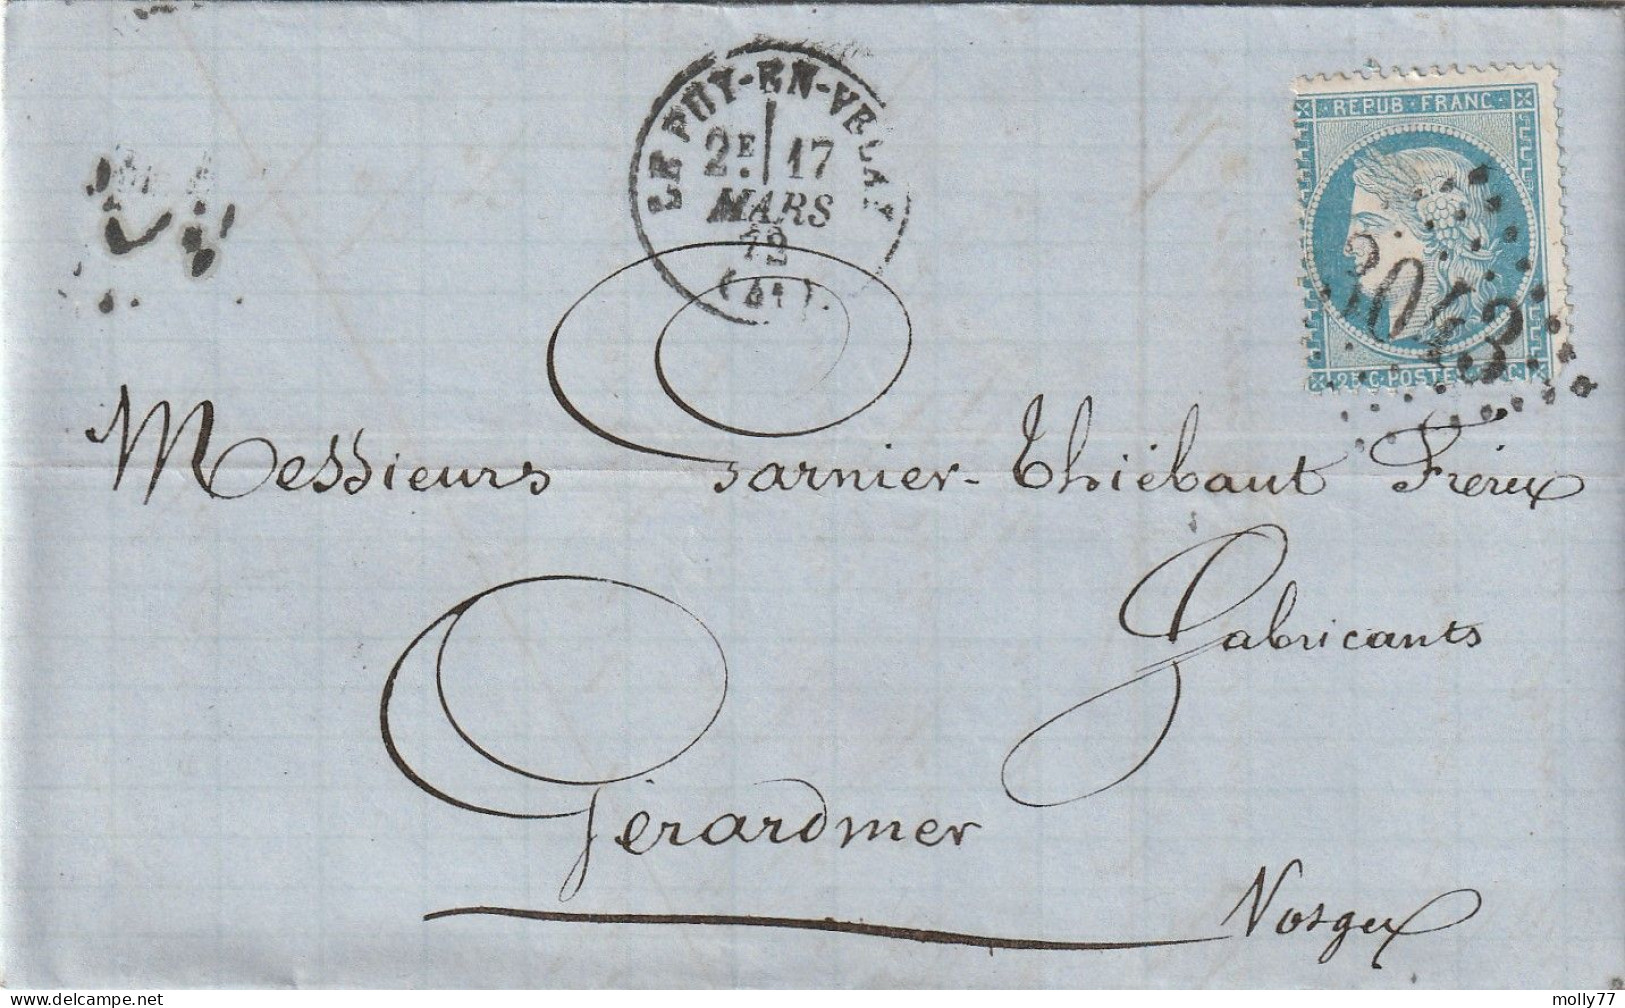 LE PUY-EN-VELAY
2E 17
MARS
72
(41)
REPUB·FRANC
3043
25 C·POSTES·25 C
Messieurs Garnier-Thiébaut Frères
Fabricants
Gérardmer
Vosges
delcampe.net
molly77